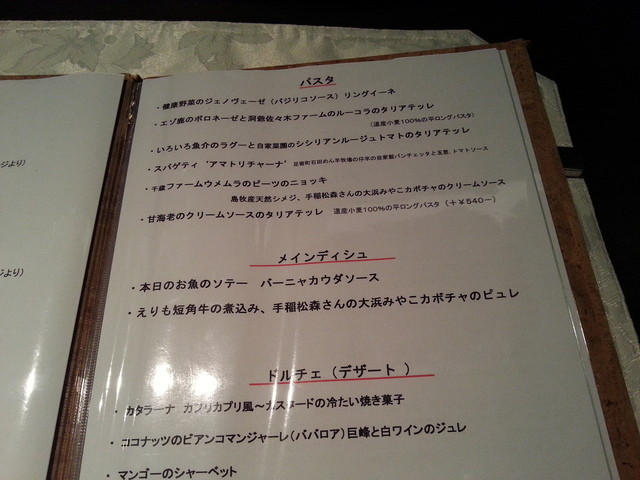 パスタ
・健康野菜のジェノヴェーゼ（バジリコソース）リングイーネ
・エゾ鹿のボロネーゼと洞爺佐々木ファームのルーコラのタリアテッレ
（道産小麦100%の平ロングパスタ）
・いろいろ魚介のラグーと自家菜園のシシリアンルージュトマトのタリアテッレ
・スパゲティ‘アマトリチャーナ’ 足寄町石田めん羊牧場の仔羊の自家製パンチェッタと玉葱、トマトソース
・千歳ファームウメムラのビーツのニョッキ
島牧産天然シメジ、手稲松森さんの大浜みやこカボチャのクリームソース
・甘海老のクリームソースのタリアテッレ 道産小麦100%の平ロングパスタ（＋￥540－）
メインディシュ
・本日のお魚のソテー バーニャカウダソース
・えりも短角牛の煮込み、手稲松森さんの大浜みやこカボチャのピュレ
ドルチェ（デザート）
・カタラーナ カプリカプリ風～カスタードの冷たい焼き菓子
・ココナッツのビアンコマンジャーレ（ババロア）巨峰と白ワインのジュレ
・マンゴーのシャーベット
ジより）
ジより）